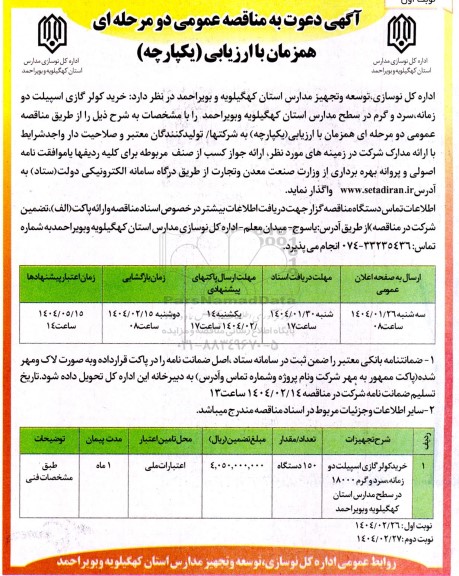 نوبت اول
آگهی دعوت به مناقصه عمومی دو مرحله ای
همزمان با ارزیابی (یکپارچه)
اداره کل نوسازی مدارس
استان کهگیلویه وبویراحمد
اداره کل نوسازی مدارس
استان کهگیلویه وبویراحمد
اداره کل نوسازی،توسعه وتجهیز مدارس استان کهگیلویه و بویراحمد در نظر دارد: خرید کولر گازی اسپیلت دو
زمانه،سرد و گرم در سطح مدارس استان کهگیلویه وبویراحمد را با مشخصات به شرح ذیل را از طریق مناقصه
عمومی دو مرحله ای همزمان با ارزیابی(یکپارچه) به شرکتها/ تولیدکنندگان معتبر و صلاحیت دار واجدشرایط
با ارائه مدارک شرکت در زمینه های مورد نظر، ارائه جواز کسب از صنف مربوطه برای کلیه ردیفها یاموافقت نامه
اصولی و پروانه بهره برداری از وزارت صنعت معدن وتجارت از طریق درگاه سامانه الکترونیکی دولت(ستاد) به
آدرس www.setadiran.ir واگذار نماید.
اطلاعات تماس دستگاه مناقصه گزار جهت دریافت اطلاعات بیشتر در خصوص اسناد مناقصه وارائه پاکت(الف)،تضمین
شرکت در مناقصه)از طریق آدرس:یاسوج-میدان معلم-اداره کل نوسازی مدارس استان کهگیلویه وبویراحمدبه شماره
تماس:۳۳۲۳۵۴۳۶-۰۷۴ انجام می پذیرد.
ارسال به صفحه اعلان عمومی | مهلت دریافت اسناد | مهلت ارسال پاکتهای پیشنهادی | زمان بازگشایی | زمان اعتبار پیشنهادها
سه شنبه ۱۴۰۴/۰۱/۲۶ ساعت۰۸ | شنبه ۱۴۰۴/۰۱/۳۰ ساعت۱۷ | یکشنبه ۱۴ /۱۴۰۴/۰۲ ساعت۱۷ | دوشنبه ۱۴۰۴/۰۲/۱۵ ساعت۰۸ | ۱۴۰۴/۰۵/۱۵ ساعت۱۴
ParsNamadData
پایگاه اطلاع رسانی مناقصه و مزایده
۰۲۱-۸۸۳۴۹۶۷۰-۵
۱- ضمانتنامه بانکی معتبر را ضمن ثبت در سامانه ستاد ،اصل ضمانت نامه را در پاکت قرارداده وبه صورت لاک ومهر
شده(پاکت ممهور به مهر شرکت ونام پروژه وشماره تماس وآدرس) به دبیرخانه این اداره کل تحویل داده شود.تاریخ
تسلیم ضمانت نامه شرکت در مناقصه ۱۴۰۴/۰۲/۱۴ ساعت۱۳
۲-سایر اطلاعات وجزئیات مربوط در اسناد مناقصه مندرج میباشد.
ردیف | شرح تجهیزات | تعداد/مقدار | مبلغ تضمین(ریال) | محل تامین اعتبار | مدت پیمان | توضیحات
۱ | خریدکولر گازی اسپیلت دو زمانه،سردو گرم ۱۸۰۰۰ در سطح مدارس استان کهگیلویه وبویراحمد | ۱۵۰ دستگاه | ۴,۰۵۰,۰۰۰,۰۰۰ | اعتبارات ملی | ۱ ماه | طبق مشخصات فنی
نوبت اول: ۱۴۰۴/۰۲/۲۶
نوبت دوم: ۱۴۰۴/۰۲/۲۷
روابط عمومی اداره کل نوسازی،توسعه وتجهیز مدارس استان کهگیلویه وبویراحمد